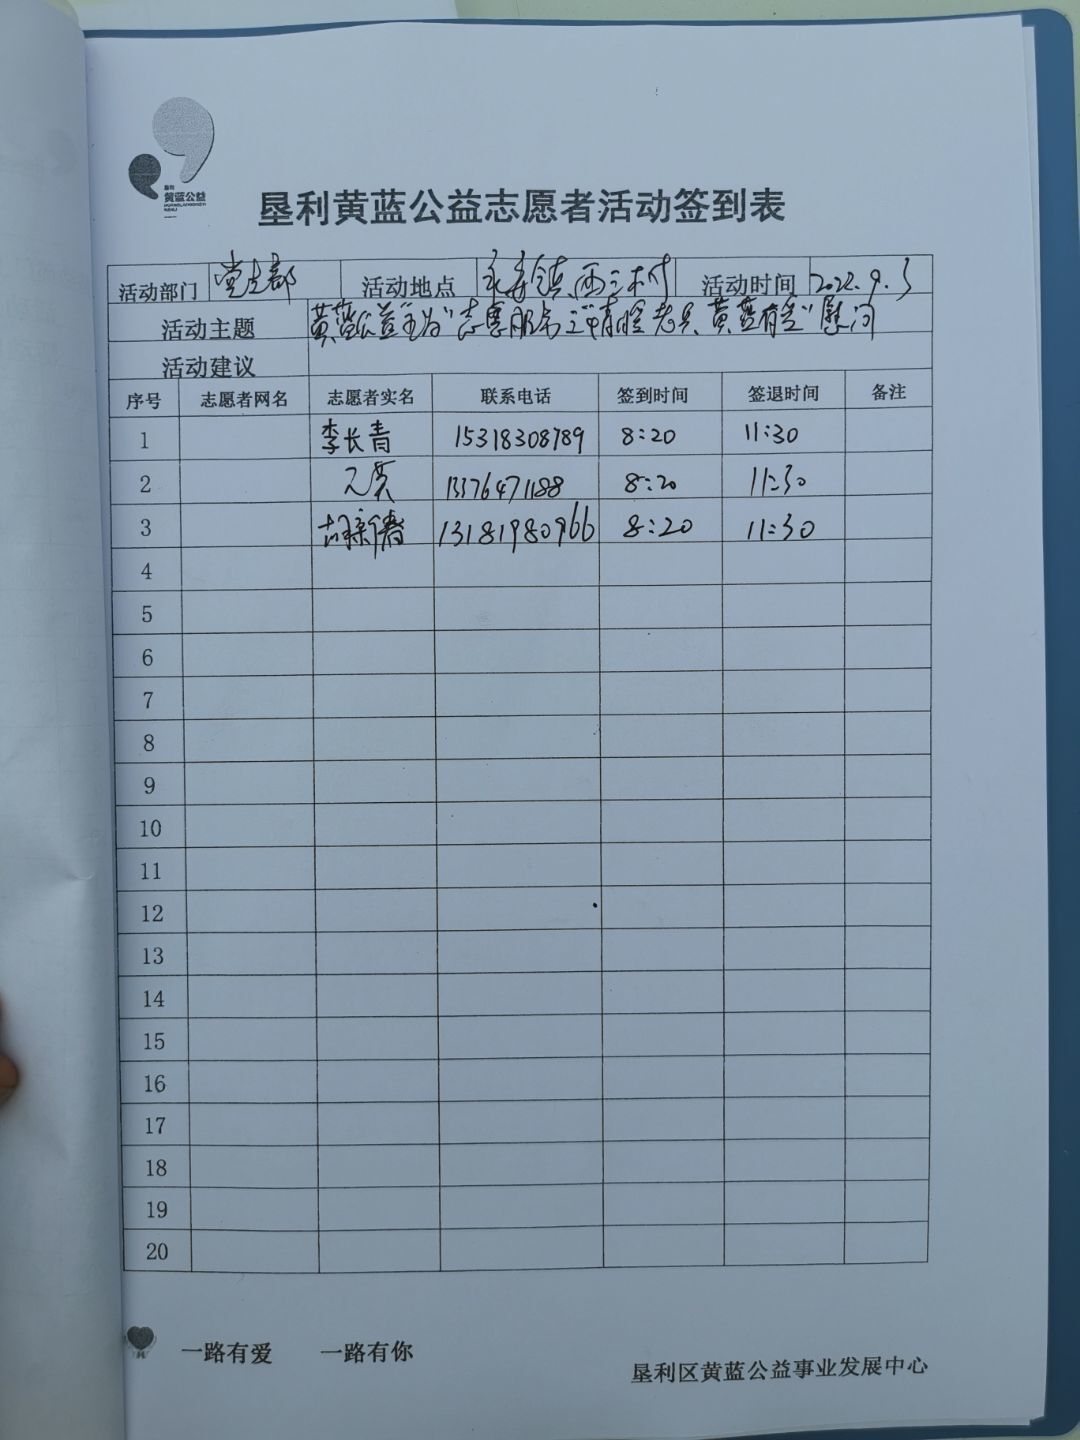 垦利
黄蓝公益
垦利黄蓝公益志愿者活动签到表
活动部门 党支部 活动地点 永安镇西三村 活动时间 2022.9.3
活动主题 黄蓝公益 志愿服务 情暖老兵 黄蓝有爱”慰问
活动建议
序号 志愿者网名 志愿者实名 联系电话 签到时间 签退时间 备注
1 李长青 15318308789 8:20 11:30
2 13376471188 8:20 11:30
3 13181980966 8:20 11:30
4
5
6
7
8
9
10
11
12
13
14
15
16
17
18
19
20
一路有爱 一路有你
垦利区黄蓝公益事业发展中心